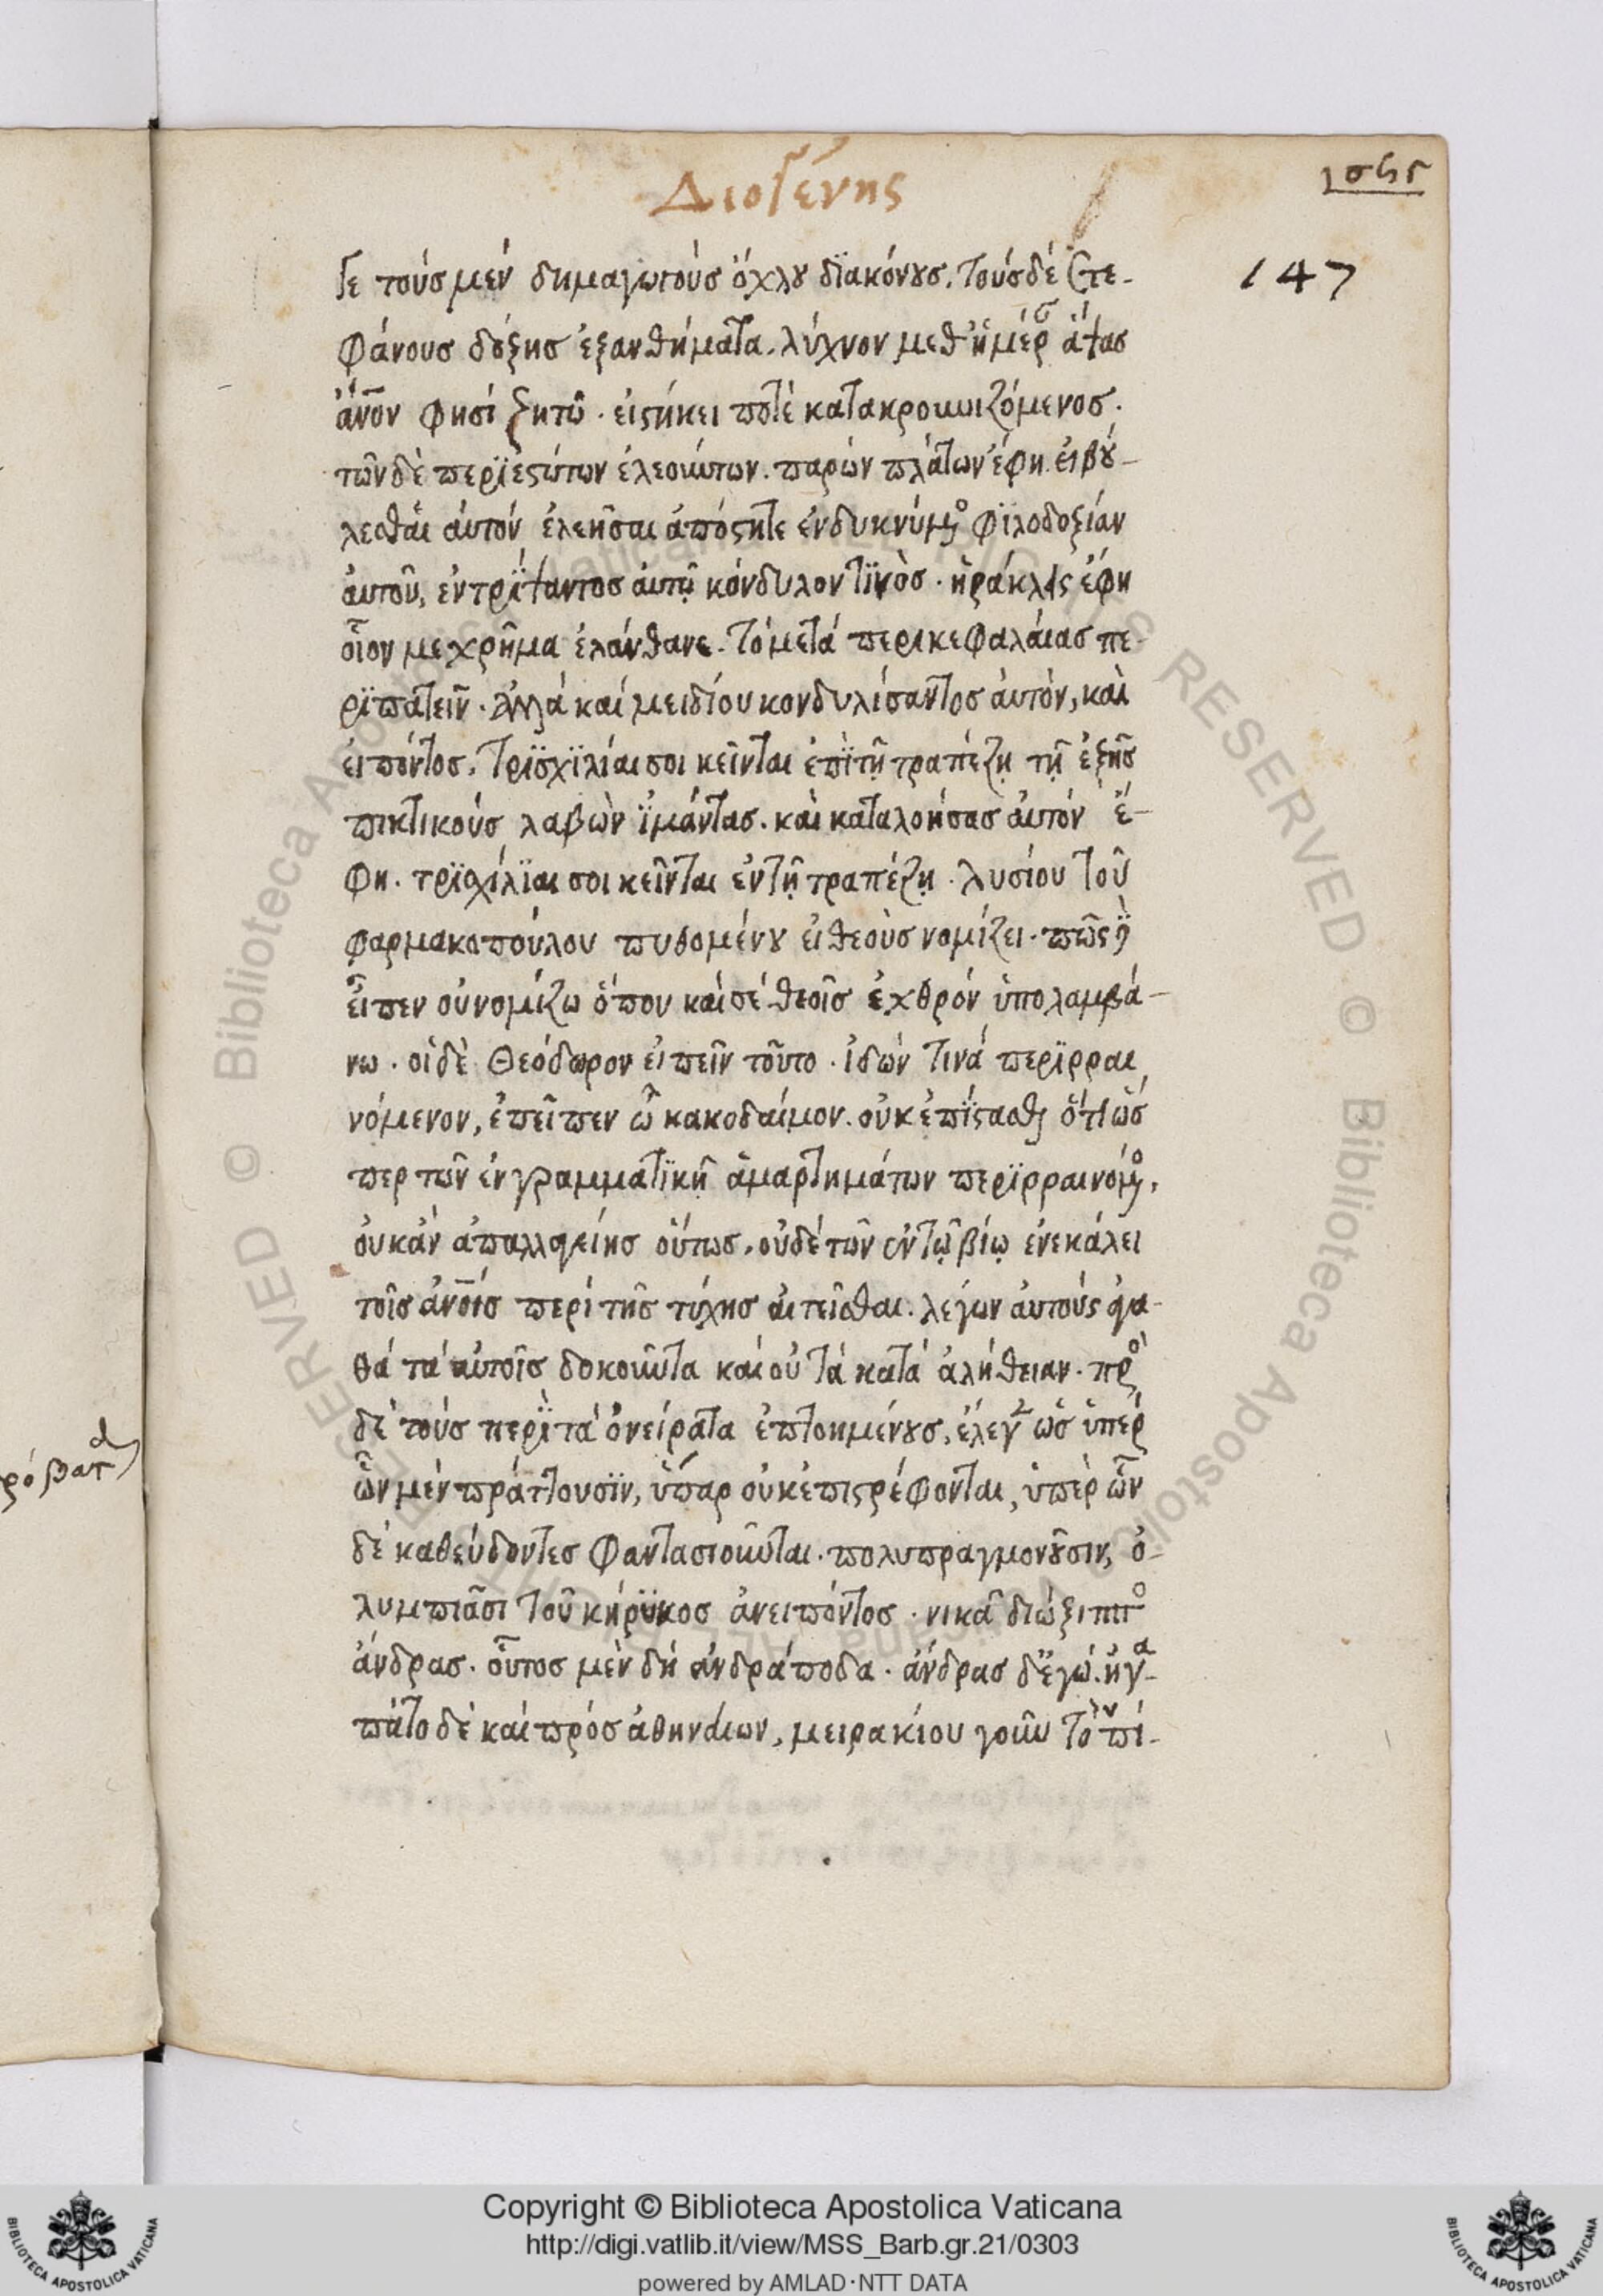 Διογένης
͵σϟϛ
147
γε τοὺσ μὲν δημαγωγοὺσ ὄχλου διακόνουσ. τοὺσ δὲ στε-
φάνουσ δόξησ ἐξανθήματα. λύχνον μεθ' ἡμέρ ἅψασ
ἄνον φησὶ ζητῶ. εἱστήκει ποτὲ κατακρουνιζόμενοσ.
τῶν δὲ περϊεστώτων ἐλεούντων. παρὼν πλάτων ἔφη. εἰ βού-
λεσθαι αὐτόν ἐλεῆσαι ἀπόστητε ἐνδυκνύμενο φϊλοδοξίαν
αὐτοῦ, ἐντρίψαντοσ αὐτῷ κόνδυλον τϊνὸσ. ἡράκλεις ἔφη
οἷον με χρῆμα ἐλάνθανε. τὸ μετά περικεφαλαίασ πε-
ρϊπατεῖν. ἀλλά καὶ μειδίου κονδυλίσαντοσ αὐτὸν, καὶ
εἰπόντοσ. τρϊσχϊλίαι σοι κεῖνται ἐπὶ τῇ τραπέζῃ τῇ ἑξῆσ
πικτικοὺσ λαβὼν ἱμάντασ. καὶ καταλοήσασ αὐτόν ἔ-
φη. τρϊσχίλϊαι σοι κεῖνται ἐν τῇ τραπέζῃ. λυσίου τοῦ
φαρμακοπούλου πυθομένου εἰ θεοὺσ νομίζει. πῶς δὲ
εἶπεν οὐ νομίζω ὅπου καί σέ θεοῖσ ἐχθρόν ὑπολαμβά-
νω. οἱ δὲ Θεόδωρον εἰπεῖν τοῦτο. ἰδών τινά περϊρραι
νόμενον, ἐπεῖπεν ὦ κακοδαίμον. οὐκ ἐπίστασθαι ὅτι ὥσ
περ τῶν ἐν γραμματϊκῇ ἁμαρτημάτων περϊρραινόμενο,
οὐκ ἄν ἀπαλλαγείησ οὕτωσ. οὐδέ τῶν ἐν τῷ βίῳ ἐνεκάλει
τοῖσ ἀνοισ περὶ τῆσ τύχησ αἰτεῖσθαι. λέγων αὐτοὺς ἀγα-
θά τὰ αὐτοῖσ δοκοῦντα καὶ οὐ τά κατά ἀλήθειαν. πρὸ
δὲ τοὺσ περὶ τὰ ὀνείρατα ἐπτοημένουσ, ἔλεγ ὡσ ὑπέρ
ὧν μὲν πράττουσϊν, ὕπαρ οὐκ ἐπιστρέφονται, ὑπὲρ ὧν
δὲ καθεύδοντεσ φαντασιοῦνται. πολυπραγμονοῦσιν, ὀ-
λυμπιᾶσι τοῦ κήρϋκοσ ἀνειπόντοσ. νικᾶ διώξιππο
ἄνδρασ. οὗτοσ μὲν δή ἀνδράποδα. ἄνδρασ δ' ἐγώ. ἠγα-
πᾶτο δὲ καὶ πρόσ ἀθηναίων, μειρακίου γοῦν τὸν πί-